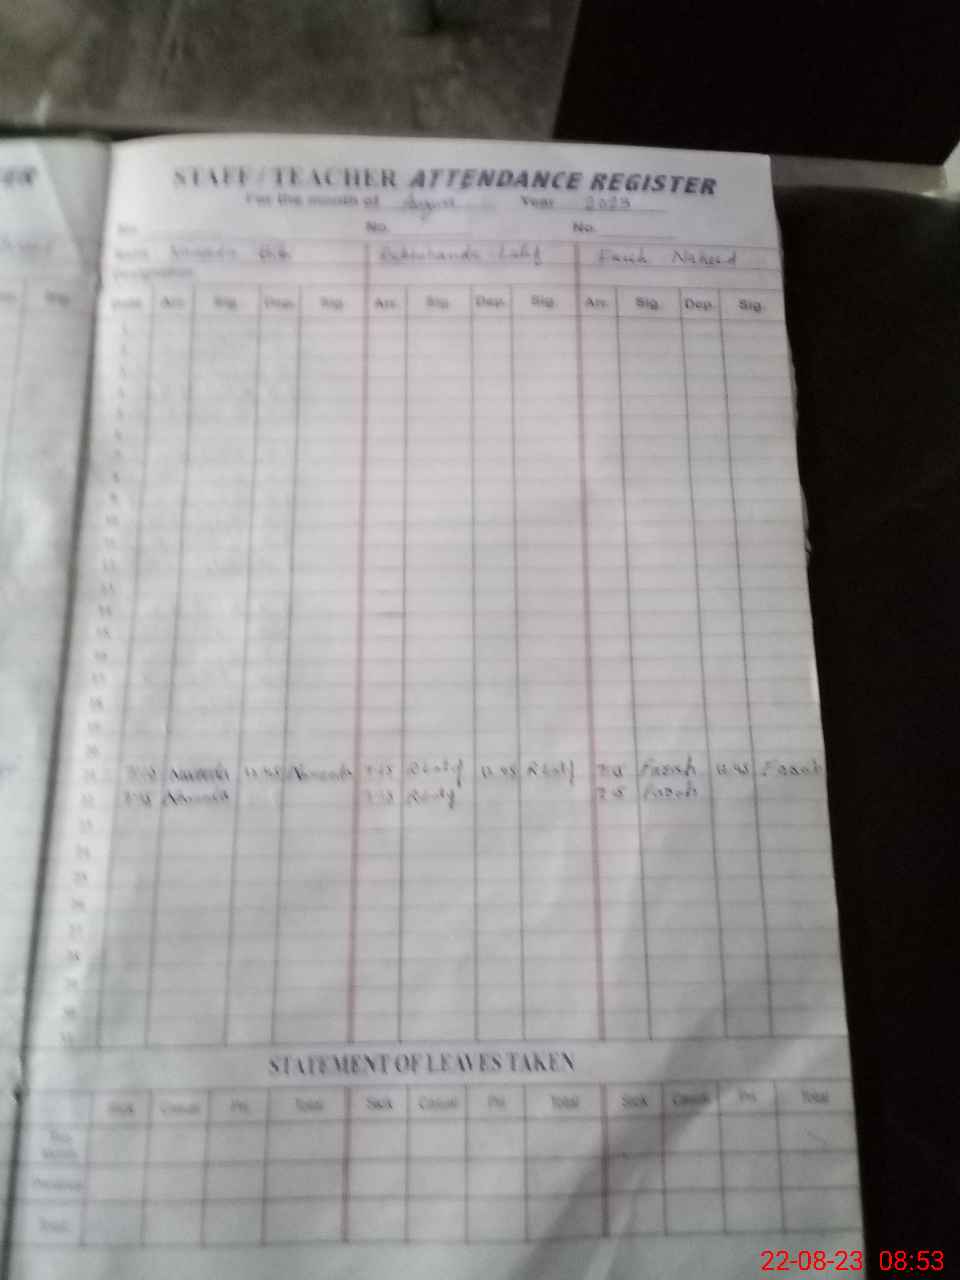 STAFF / TEACHER ATTENDANCE REGISTER
For the month of August Year 2023
No. No. No.
Name Latif Farah Naheed
Designation
Date Arr. Sig. Dep. Sig. Arr. Sig. Dep. Sig. Arr. Sig. Dep. Sig.
1
2
3
4
5
6
7
8
9
10
11
12
13
14
15
16
17
18
19
20
21 Naveeda 12.45 Naveeda 7.45 RLatif 12.45 RLatif Farah 12.45 Farah
22 7.45 Naveeda 7.45 RLatif Farah
23
24
25
26
27
28
29
30
31
STATEMENT OF LEAVES TAKEN
Sick Casual Pri. Total Sick Casual Pri. Total Sick Casual Pri. Total
This Month
Previous
Total
22-08-23 08:53